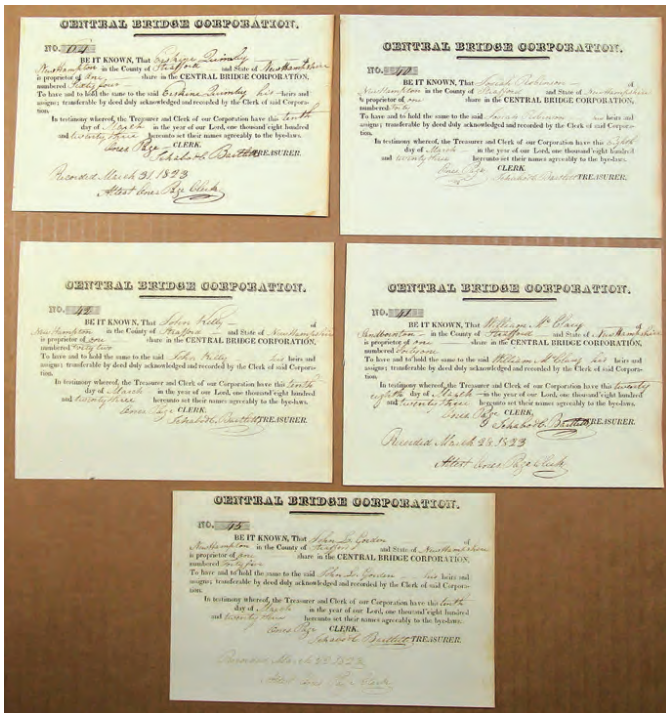 CENTRAL BRIDGE CORPORATION.
NO. 64
BE IT KNOWN, That Erskine Quimby of
New Hampton in the County of Strafford and State of New Hampshire
is proprietor of one share in the CENTRAL BRIDGE CORPORATION,
numbered Sixty four
To have and to hold the same to the said Erskine Quimby his heirs and
assigns; transferable by deed duly acknowledged and recorded by the Clerk of said Corpora-
tion.
In testimony whereof, the Treasurer and Clerk of our Corporation have this tenth
day of March in the year of our Lord, one thousand eight hundred
and twenty three hereunto set their names agreeably to the bye-laws.
Amos Page CLERK.
Ichabod Bartlett TREASURER.
Recorded March 31, 1823
Attest Amos Page Clerk
CENTRAL BRIDGE CORPORATION.
NO. 40
BE IT KNOWN, That Josiah Robinson of
New Hampton in the County of Strafford and State of New Hampshire
is proprietor of one share in the CENTRAL BRIDGE CORPORATION,
numbered forty
To have and to hold the same to the said Josiah Robinson his heirs and
assigns; transferable by deed duly acknowledged and recorded by the Clerk of said Corpora-
tion.
In testimony whereof, the Treasurer and Clerk of our Corporation have this
day of March in the year of our Lord, one thousand eight hundred
and twenty three hereunto set their names agreeably to the bye-laws.
Amos Page CLERK.
Ichabod Bartlett TREASURER.
CENTRAL BRIDGE CORPORATION.
NO. 42
BE IT KNOWN, That John Kelly of
New Hampton in the County of Strafford and State of New Hampshire
is proprietor of one share in the CENTRAL BRIDGE CORPORATION,
numbered forty two
To have and to hold the same to the said John Kelly his heirs and
assigns; transferable by deed duly acknowledged and recorded by the Clerk of said Corpora-
tion.
In testimony whereof, the Treasurer and Clerk of our Corporation have this tenth
day of March in the year of our Lord, one thousand eight hundred
and twenty three hereunto set their names agreeably to the bye-laws.
Amos Page CLERK.
Ichabod Bartlett TREASURER.
CENTRAL BRIDGE CORPORATION.
NO. 41
BE IT KNOWN, That William McClary of
Sandbornton in the County of Strafford and State of New Hampshire
is proprietor of one share in the CENTRAL BRIDGE CORPORATION,
numbered forty one
To have and to hold the same to the said William McClary his heirs and
assigns; transferable by deed duly acknowledged and recorded by the Clerk of said Corpora-
tion.
In testimony whereof, the Treasurer and Clerk of our Corporation have this twenty
eighth day of March in the year of our Lord, one thousand eight hundred
and twenty three hereunto set their names agreeably to the bye-laws.
Amos Page CLERK.
Ichabod Bartlett TREASURER.
Recorded March 28, 1823
Attest Amos Page Clerk
CENTRAL BRIDGE CORPORATION.
NO. 45
BE IT KNOWN, That John L Gordon of
New Hampton in the County of Strafford and State of New Hampshire
is proprietor of one share in the CENTRAL BRIDGE CORPORATION,
numbered forty five
To have and to hold the same to the said John L Gordon his heirs and
assigns; transferable by deed duly acknowledged and recorded by the Clerk of said Corpora-
tion.
In testimony whereof, the Treasurer and Clerk of our Corporation have this tenth
day of March in the year of our Lord, one thousand eight hundred
and twenty three hereunto set their names agreeably to the bye-laws.
Amos Page CLERK.
Ichabod Bartlett TREASURER.
Recorded March 1823
Attest Amos Page Clerk